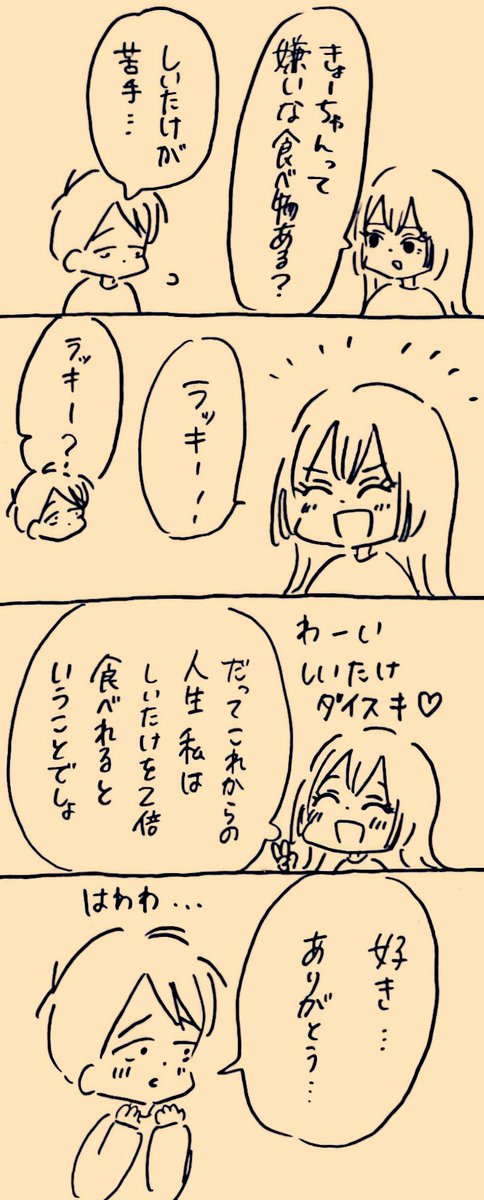 きょーちゃんって
嫌いな食べ物ある？
しいたけが
苦手…
ラッキー！
ラッキー？
わーい
しいたけ
ダイスキ♡
だってこれからの
人生 私は
しいたけを2倍
食べれると
いうことでしょ
はわわ…
好き…
ありがとう…